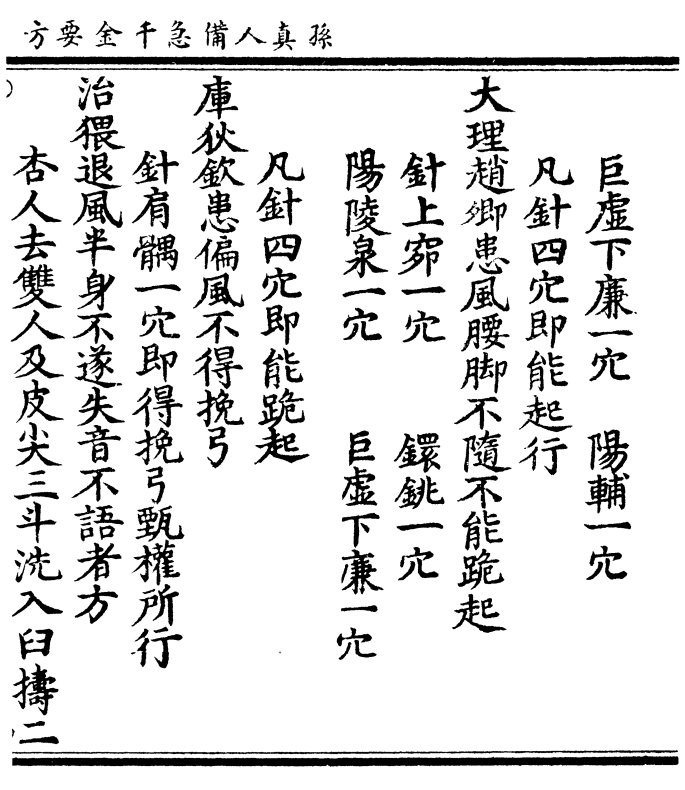 孫真人備急千金要方
巨虛下廉一穴　陽輔一穴
凡針四穴即能起行
大理趙卿患風腰脚不隨不能跪起
針上窌一穴　鐶銚一穴
陽陵泉一穴　巨虛下廉一穴
凡針四穴即能跪起
庫狄欽患偏風不得挽弓
針肩髃一穴即得挽弓甄權所行
治猥退風半身不遂失音不語者方
杏人去雙人及皮尖三斗洗入臼擣二